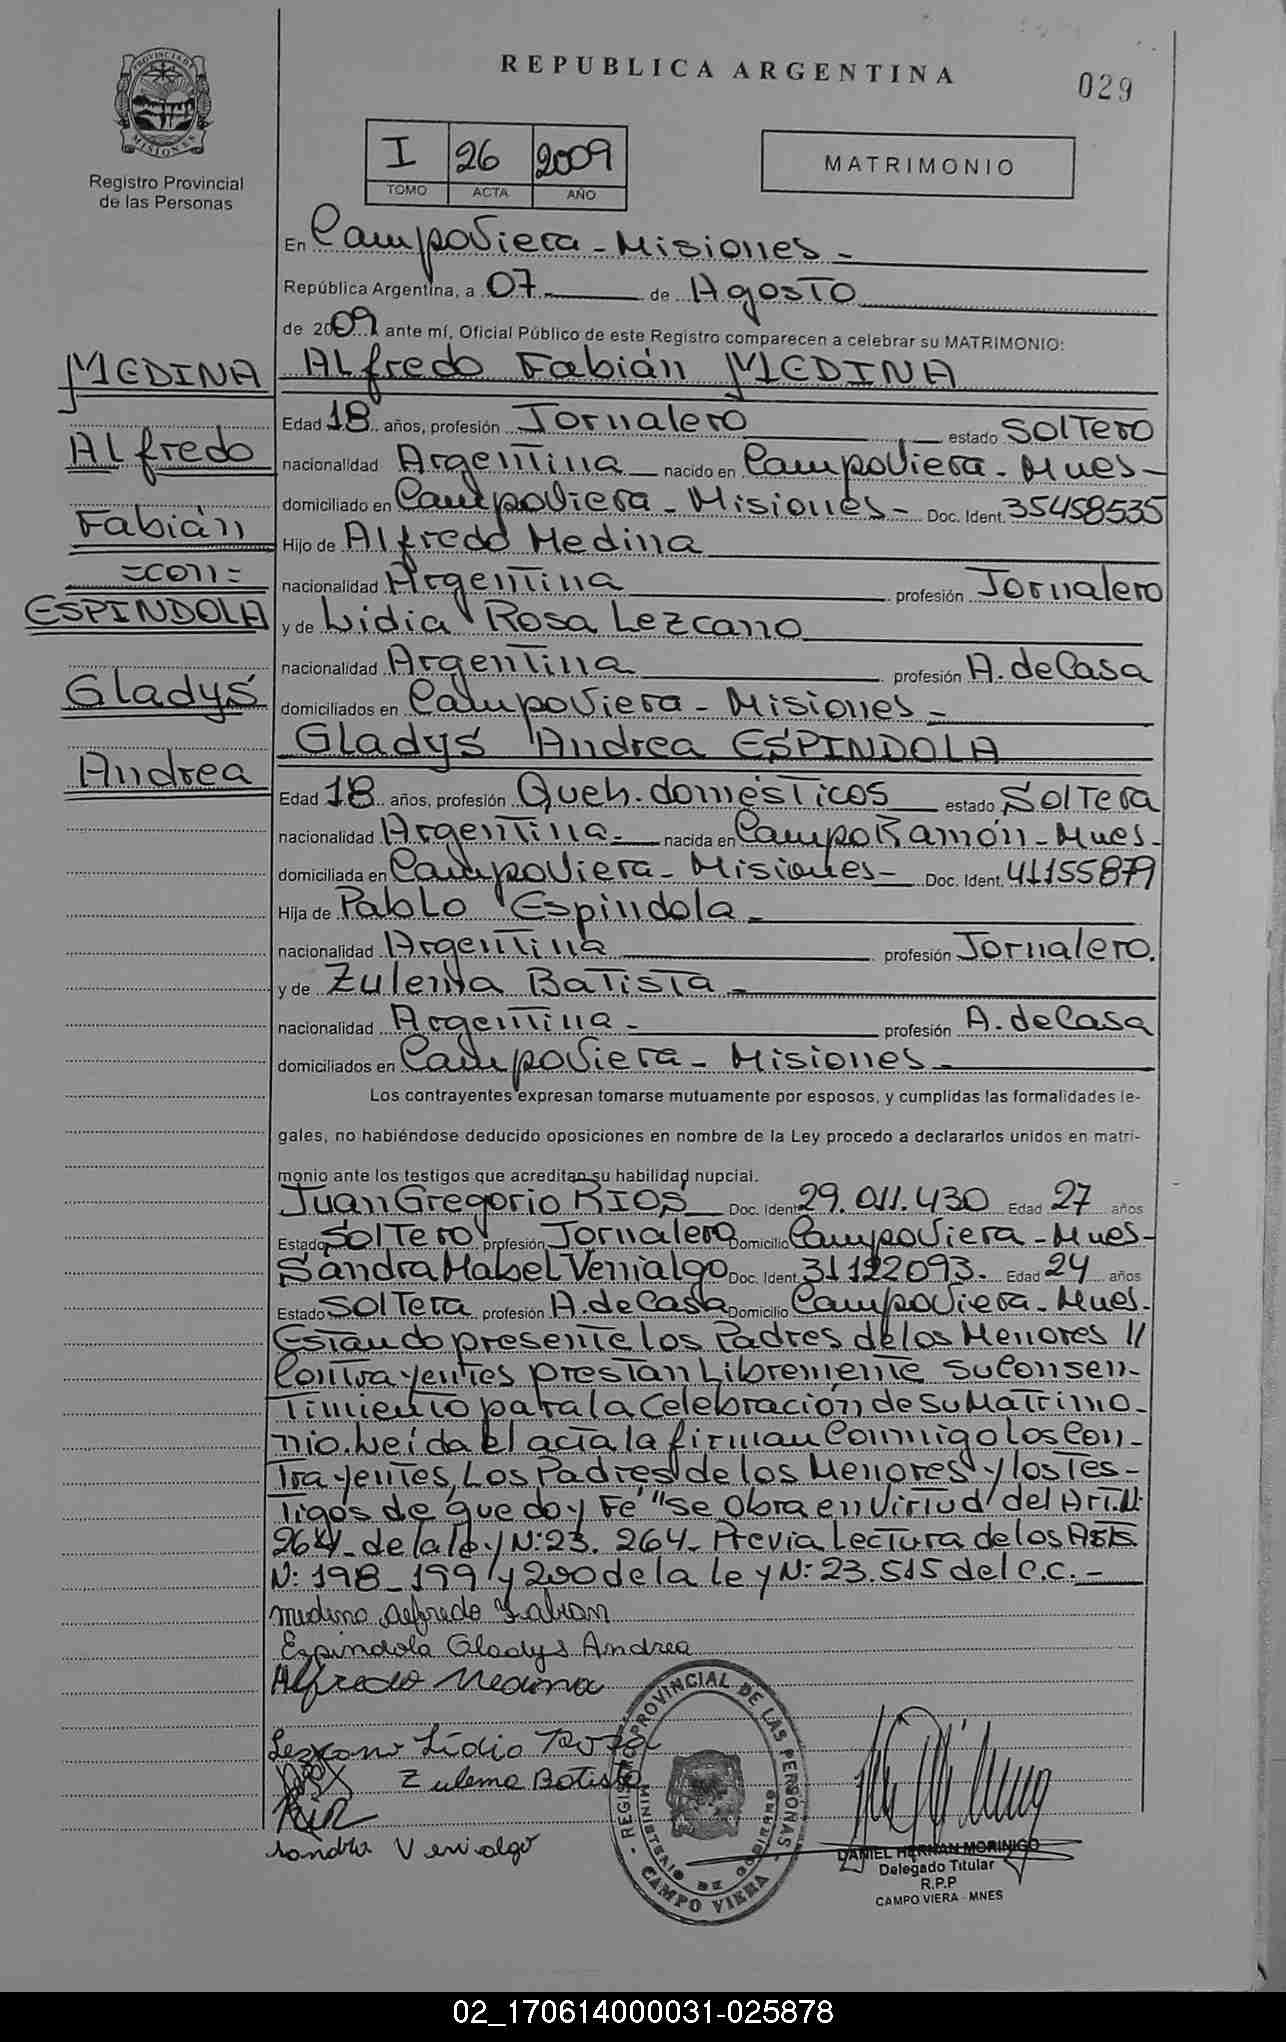 REPUBLICA ARGENTINA
029
PROVINCIA DE MISIONES
Registro Provincial
de las Personas
I 26 2009
TOMO ACTA AÑO
MATRIMONIO
En CampoViera - Misiones -
República Argentina, a 07 de Agosto
de 2009 ante mí, Oficial Público de este Registro comparecen a celebrar su MATRIMONIO:
MEDINA
Alfredo
Fabián
=con=
ESPINDOLA
Gladys
Andrea
Alfredo Fabián MEDINA
Edad 18 años, profesión Jornalero estado Soltero
nacionalidad Argentina nacido en CampoViera - Mnes -
domiciliado en CampoViera - Misiones - Doc. Ident. 35458535
Hijo de Alfredo Medina
nacionalidad Argentina profesión Jornalero
y de Lidia Rosa Lezcano
nacionalidad Argentina profesión A. de Casa
domiciliados en CampoViera - Misiones -
Gladys Andrea ESPINDOLA
Edad 18 años, profesión Queh. domésticos estado Soltera
nacionalidad Argentina - nacida en Campo Ramón - Mnes -
domiciliada en CampoViera - Misiones - Doc. Ident. 41155879
Hija de Pablo Espindola -
nacionalidad Argentina profesión Jornalero.
y de Zulema Batista -
nacionalidad Argentina - profesión A. de Casa
domiciliados en CampoViera - Misiones -
Los contrayentes expresan tomarse mutuamente por esposos, y cumplidas las formalidades le-
gales, no habiéndose deducido oposiciones en nombre de la Ley procedo a declararlos unidos en matri-
monio ante los testigos que acreditan su habilidad nupcial.
Juan Gregorio RIOS Doc. Ident. 29.011.430 Edad 27 años
Estado Soltero profesión Jornalero Domicilio CampoViera - Mnes -
Sandra Mabel Venialgo Doc. Ident. 31122093. Edad 24 años
Estado Soltera profesión A. de Casa Domicilio CampoViera - Mnes -
Estando presente los Padres de los Menores //
Contrayentes prestan Libremente su Consen-
timiento para la Celebración de su Matrimo-
nio. Leída el acta la firman Conmigo los Con-
trayentes, Los Padres de los Menores y los Tes-
tigos de que doy Fe "Se Obra en Virtud del Art. N:
264 - de la ley N: 23. 264 - Previa Lectura de los
N: 198 - 199 y 200 de la ley N: 23.515 del C.C. -
Medina Alfredo Fabian
Espindola Gladys Andrea
Alfredo Medina
Lezcano Lidia Rosa
Zulema Batista
Sandra Venialgo
REGISTRO PROVINCIAL DE LAS PERSONAS
MINISTERIO DE GOBIERNO
CAMPO VIERA
DANIEL HERNAN MORINIGO
Delegado Titular
R.P.P
CAMPO VIERA - MNES
02_170614000031-025878